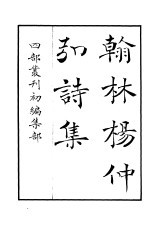 翰林楊仲
弘詩集
四部叢刊初編集部